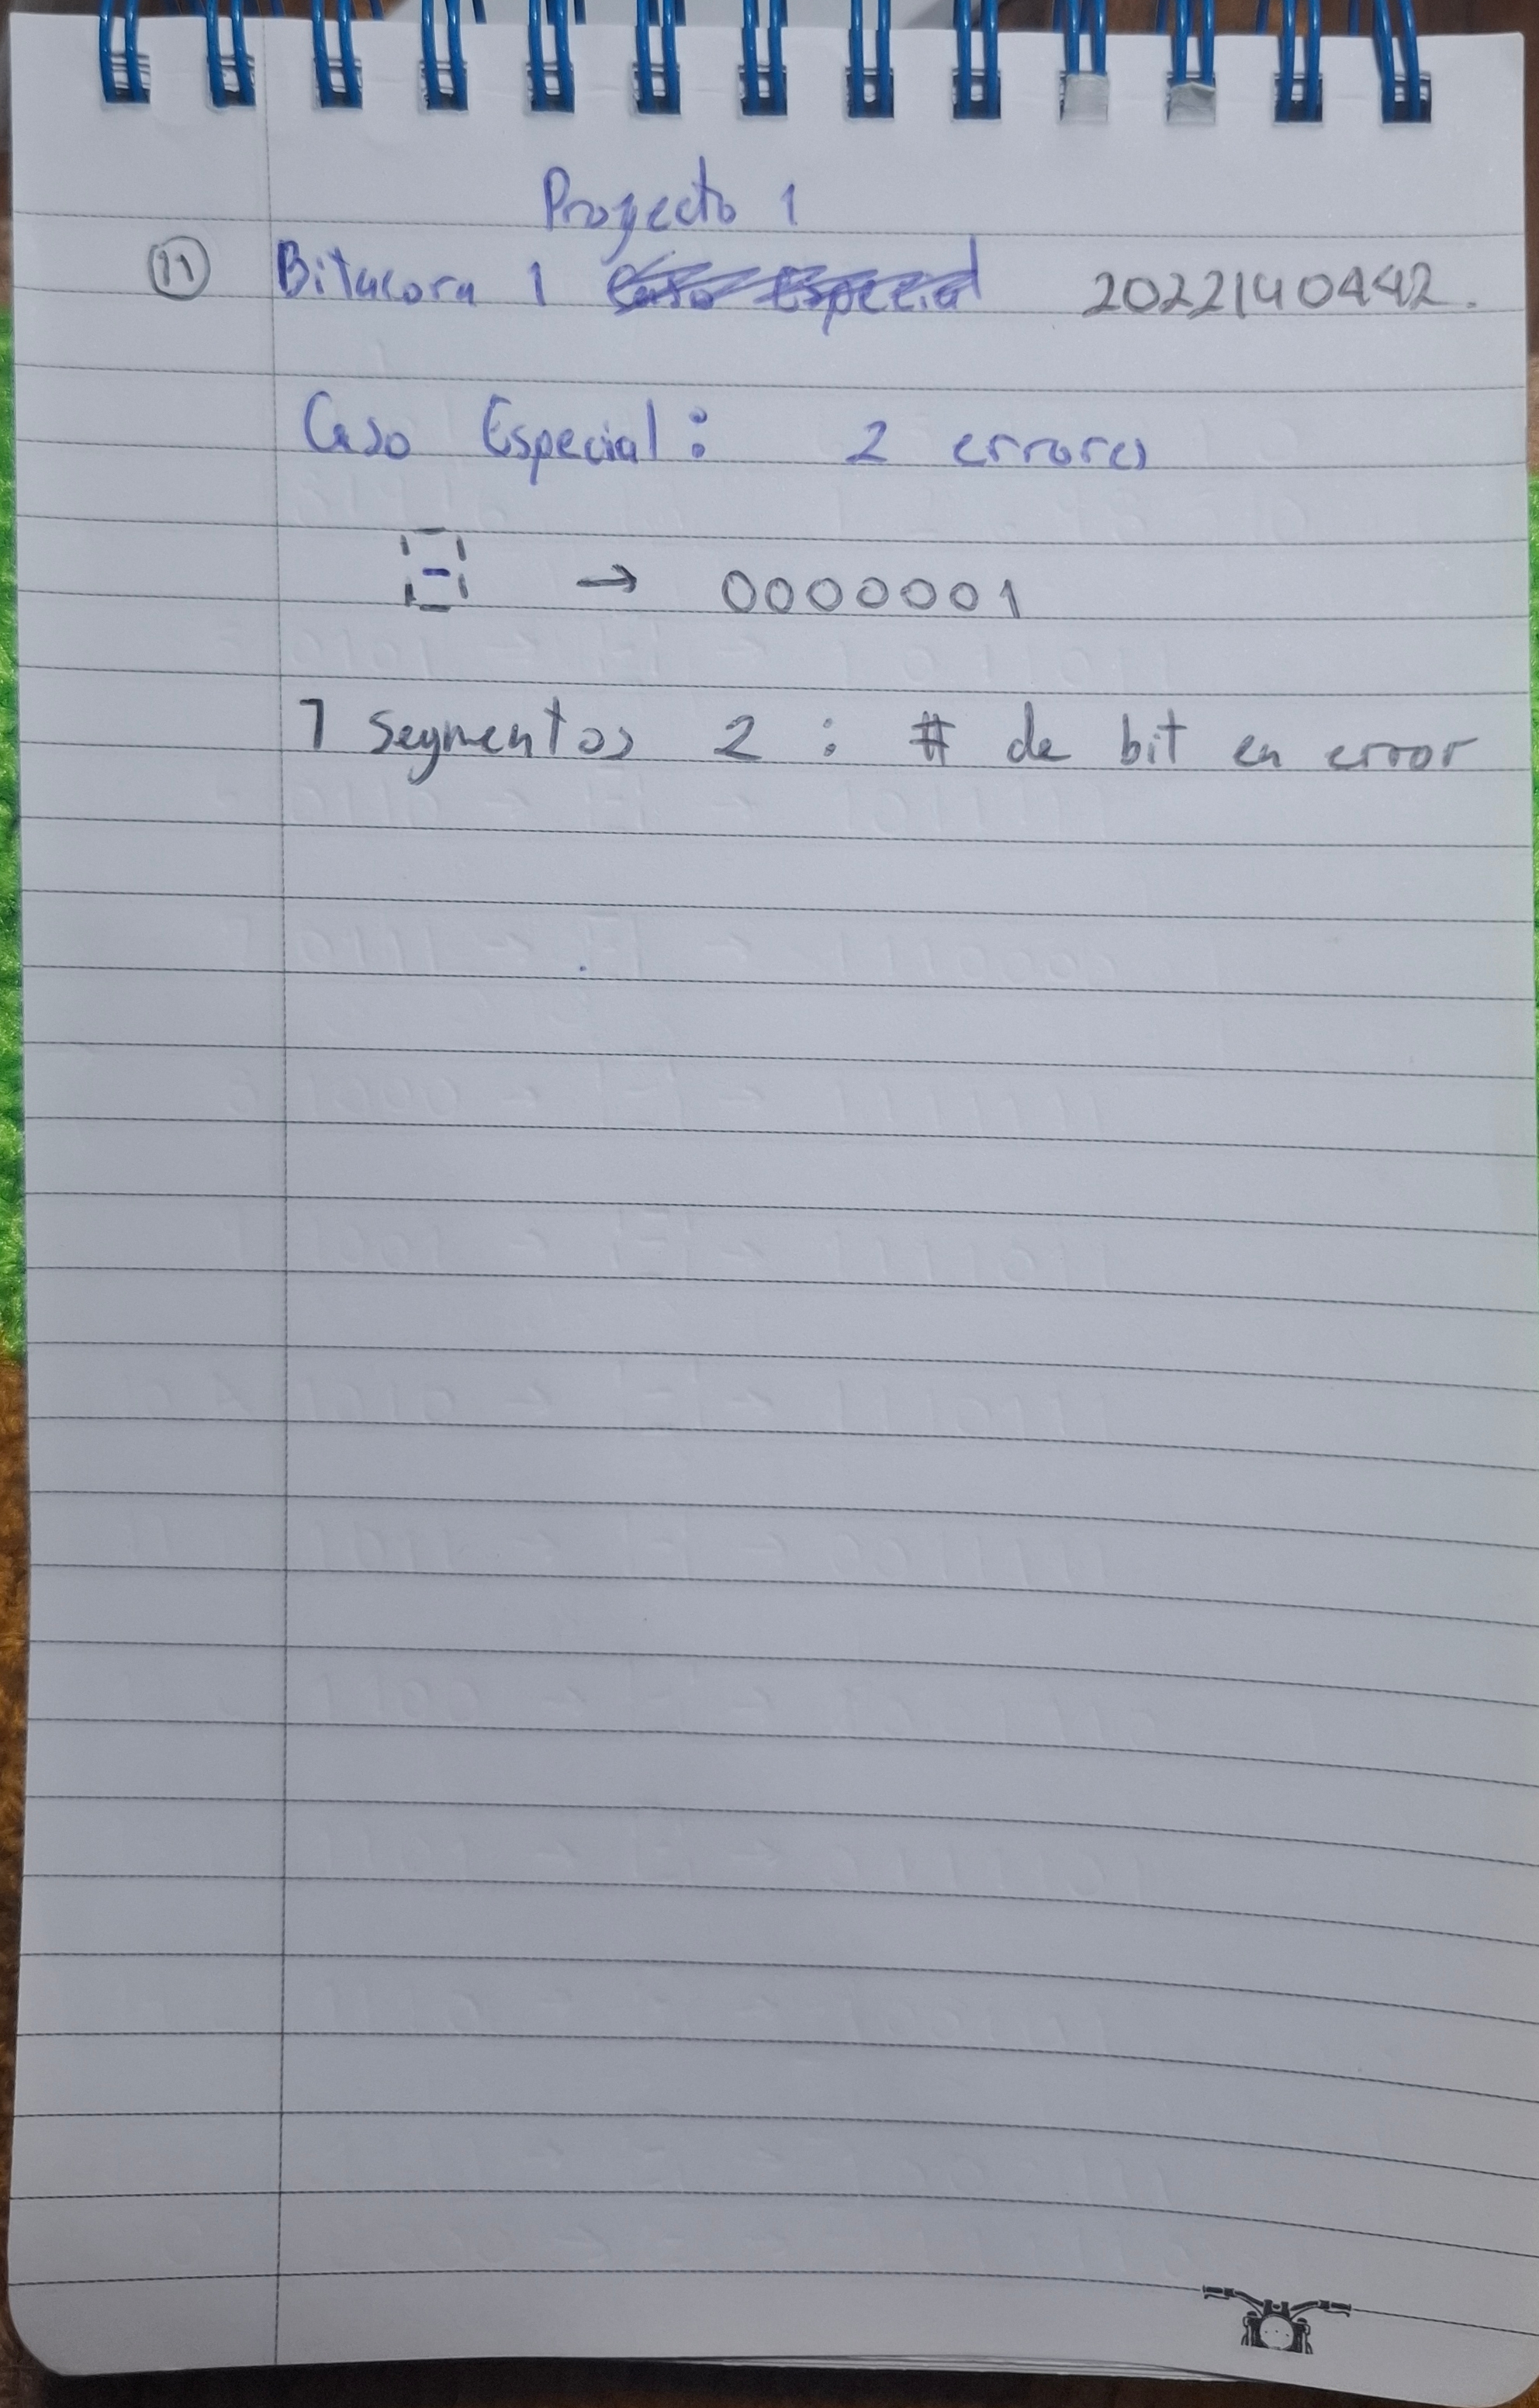 Proyecto 1
11 Bitacora 1 Caso Especial 2022140442.
Caso Especial: 2 errores
→ 0000001
7 segmentos 2 : # de bit en error